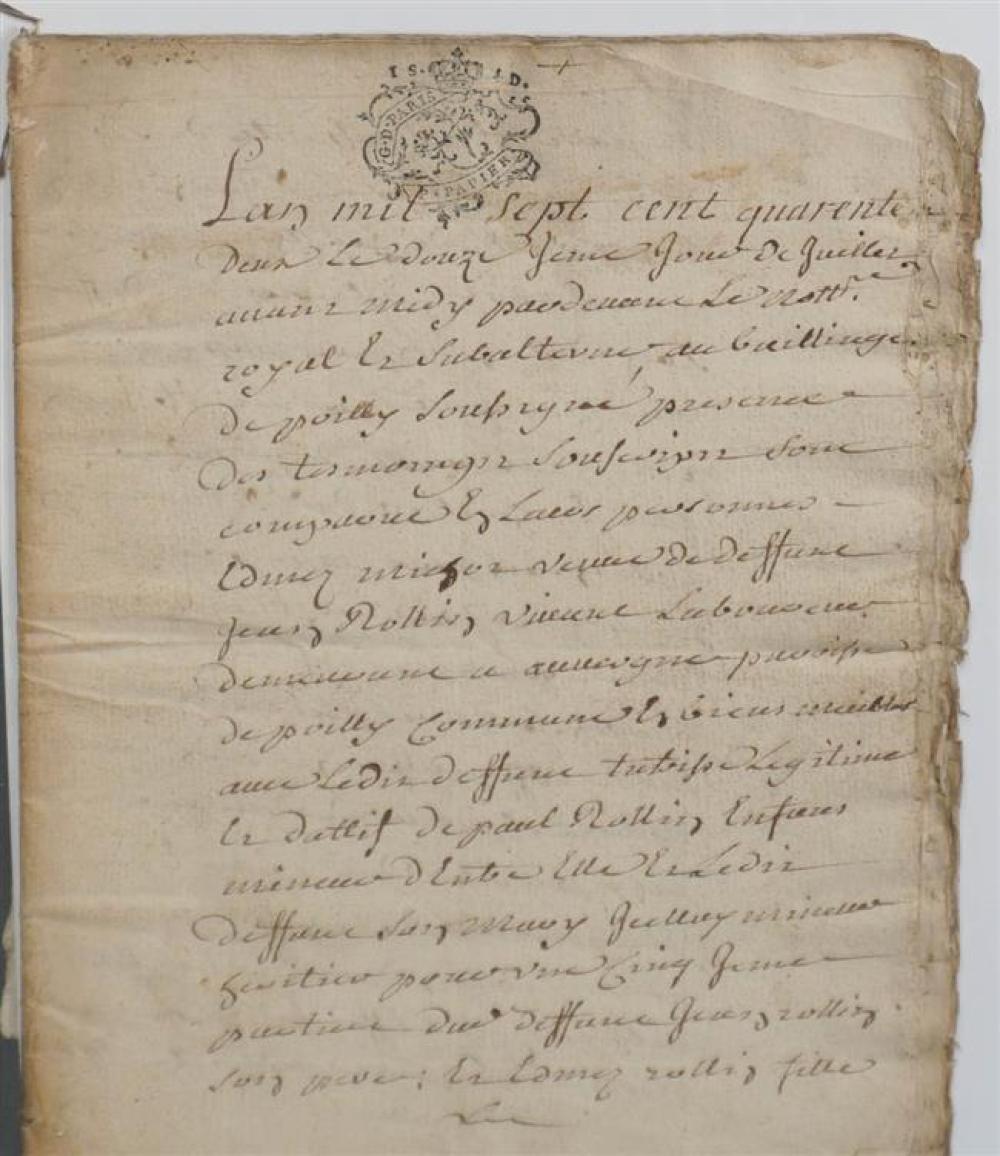 1 S. 4 D.
G. D. PARIS
P. PAPIER
Lan mil sept cent quarente
deux Le douze Jeme Jour de Juillet
auant midy pardeuant Le nottre
royal Et Subalterne au bailliage
de poilly Soussigné presence
des tesmoings Souscript Sont
comparue En Leurs personnes
Edmez veuue de deffunt
Jean Rollin viuant Laboureur
demeurant a auuergne paroisse
de poilly Commune En biens meubles
auec Ledit deffunt tutrisse Legitime
Et dattif de paul Rollin Enfans
mineur d'Entre Elle Et Ledit
deffunt Son mary Jcelluy mineur
heritier pour vne Cinq Jeme
partie dud deffunt Jean rollin
son pere ; Et Edmez rollin fille